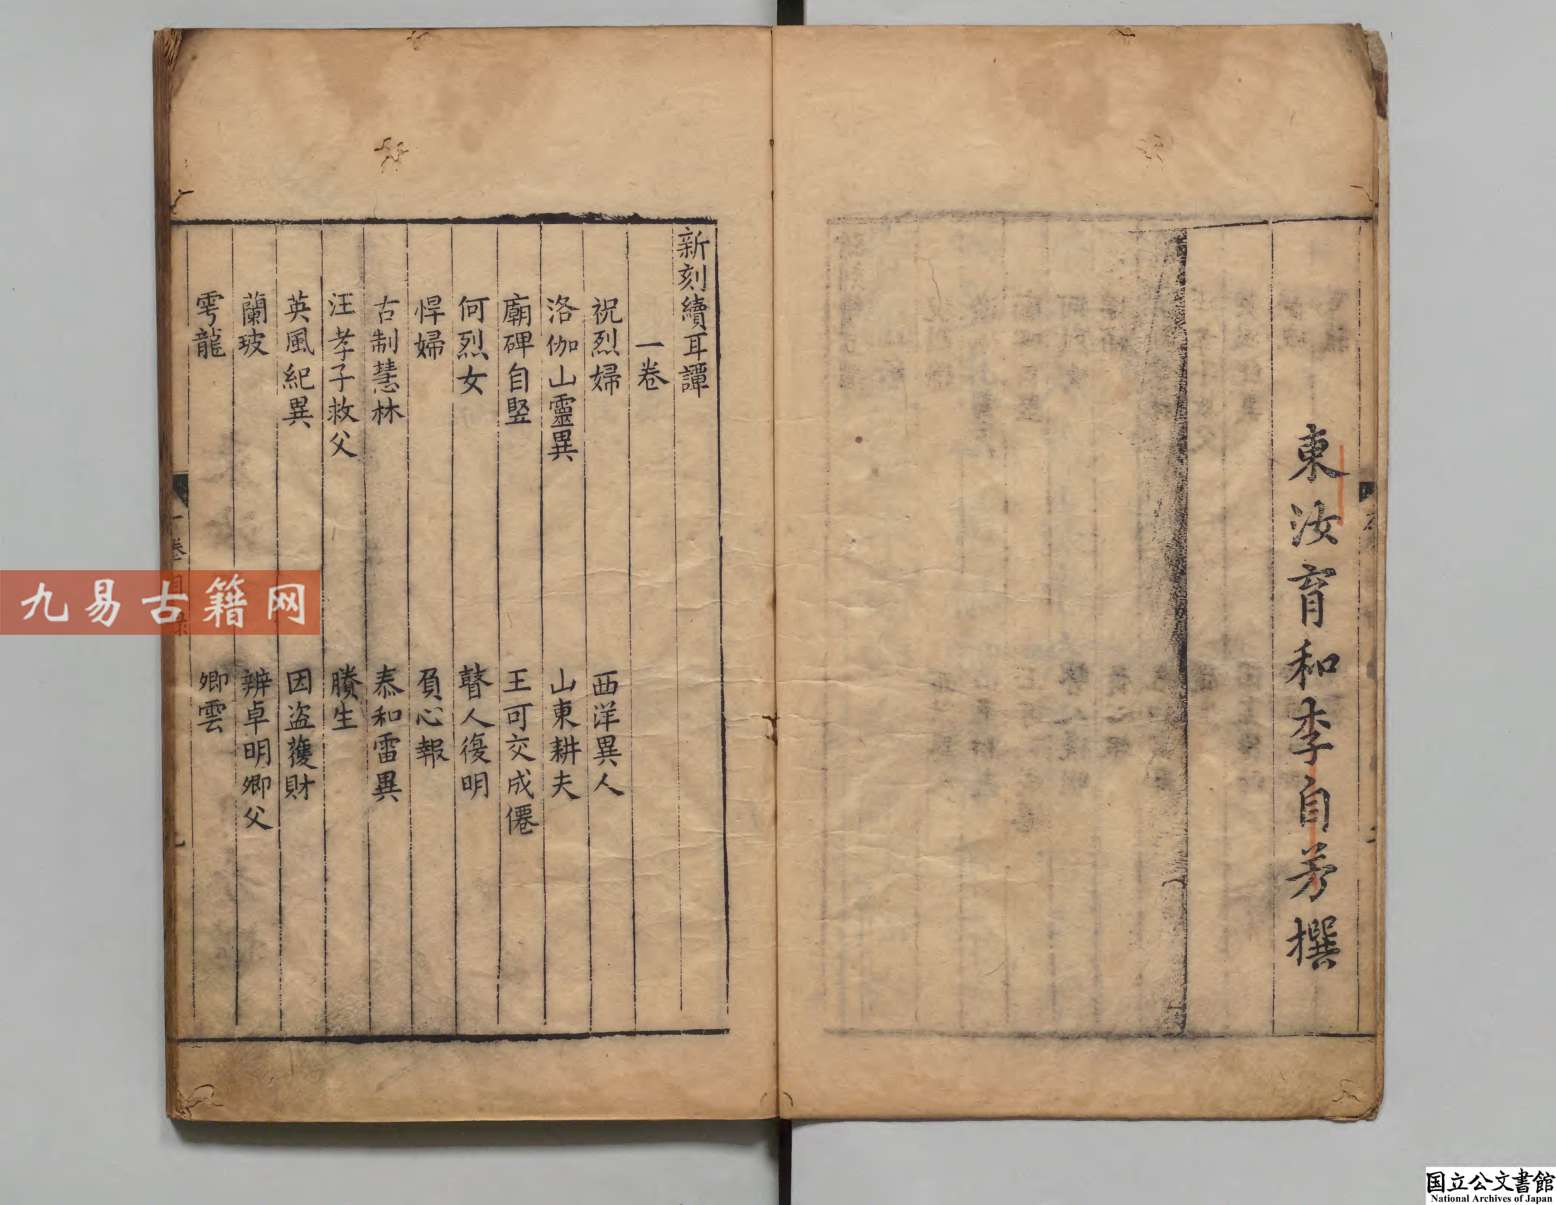 東汝育和李自芳撰
新刻續耳譚
一卷
祝烈婦　西洋異人
洛伽山靈異　山東耕夫
廟碑自竪　王可交成僊
何烈女　瞽人復明
悍婦　負心報
古制慧林　泰和雷異
汪孝子救父　賸生
英風紀異　因盗獲財
蘭玻　辨卓明卿父
雩龍　卿雲
九易古籍网
国立公文書館
National Archives of Japan